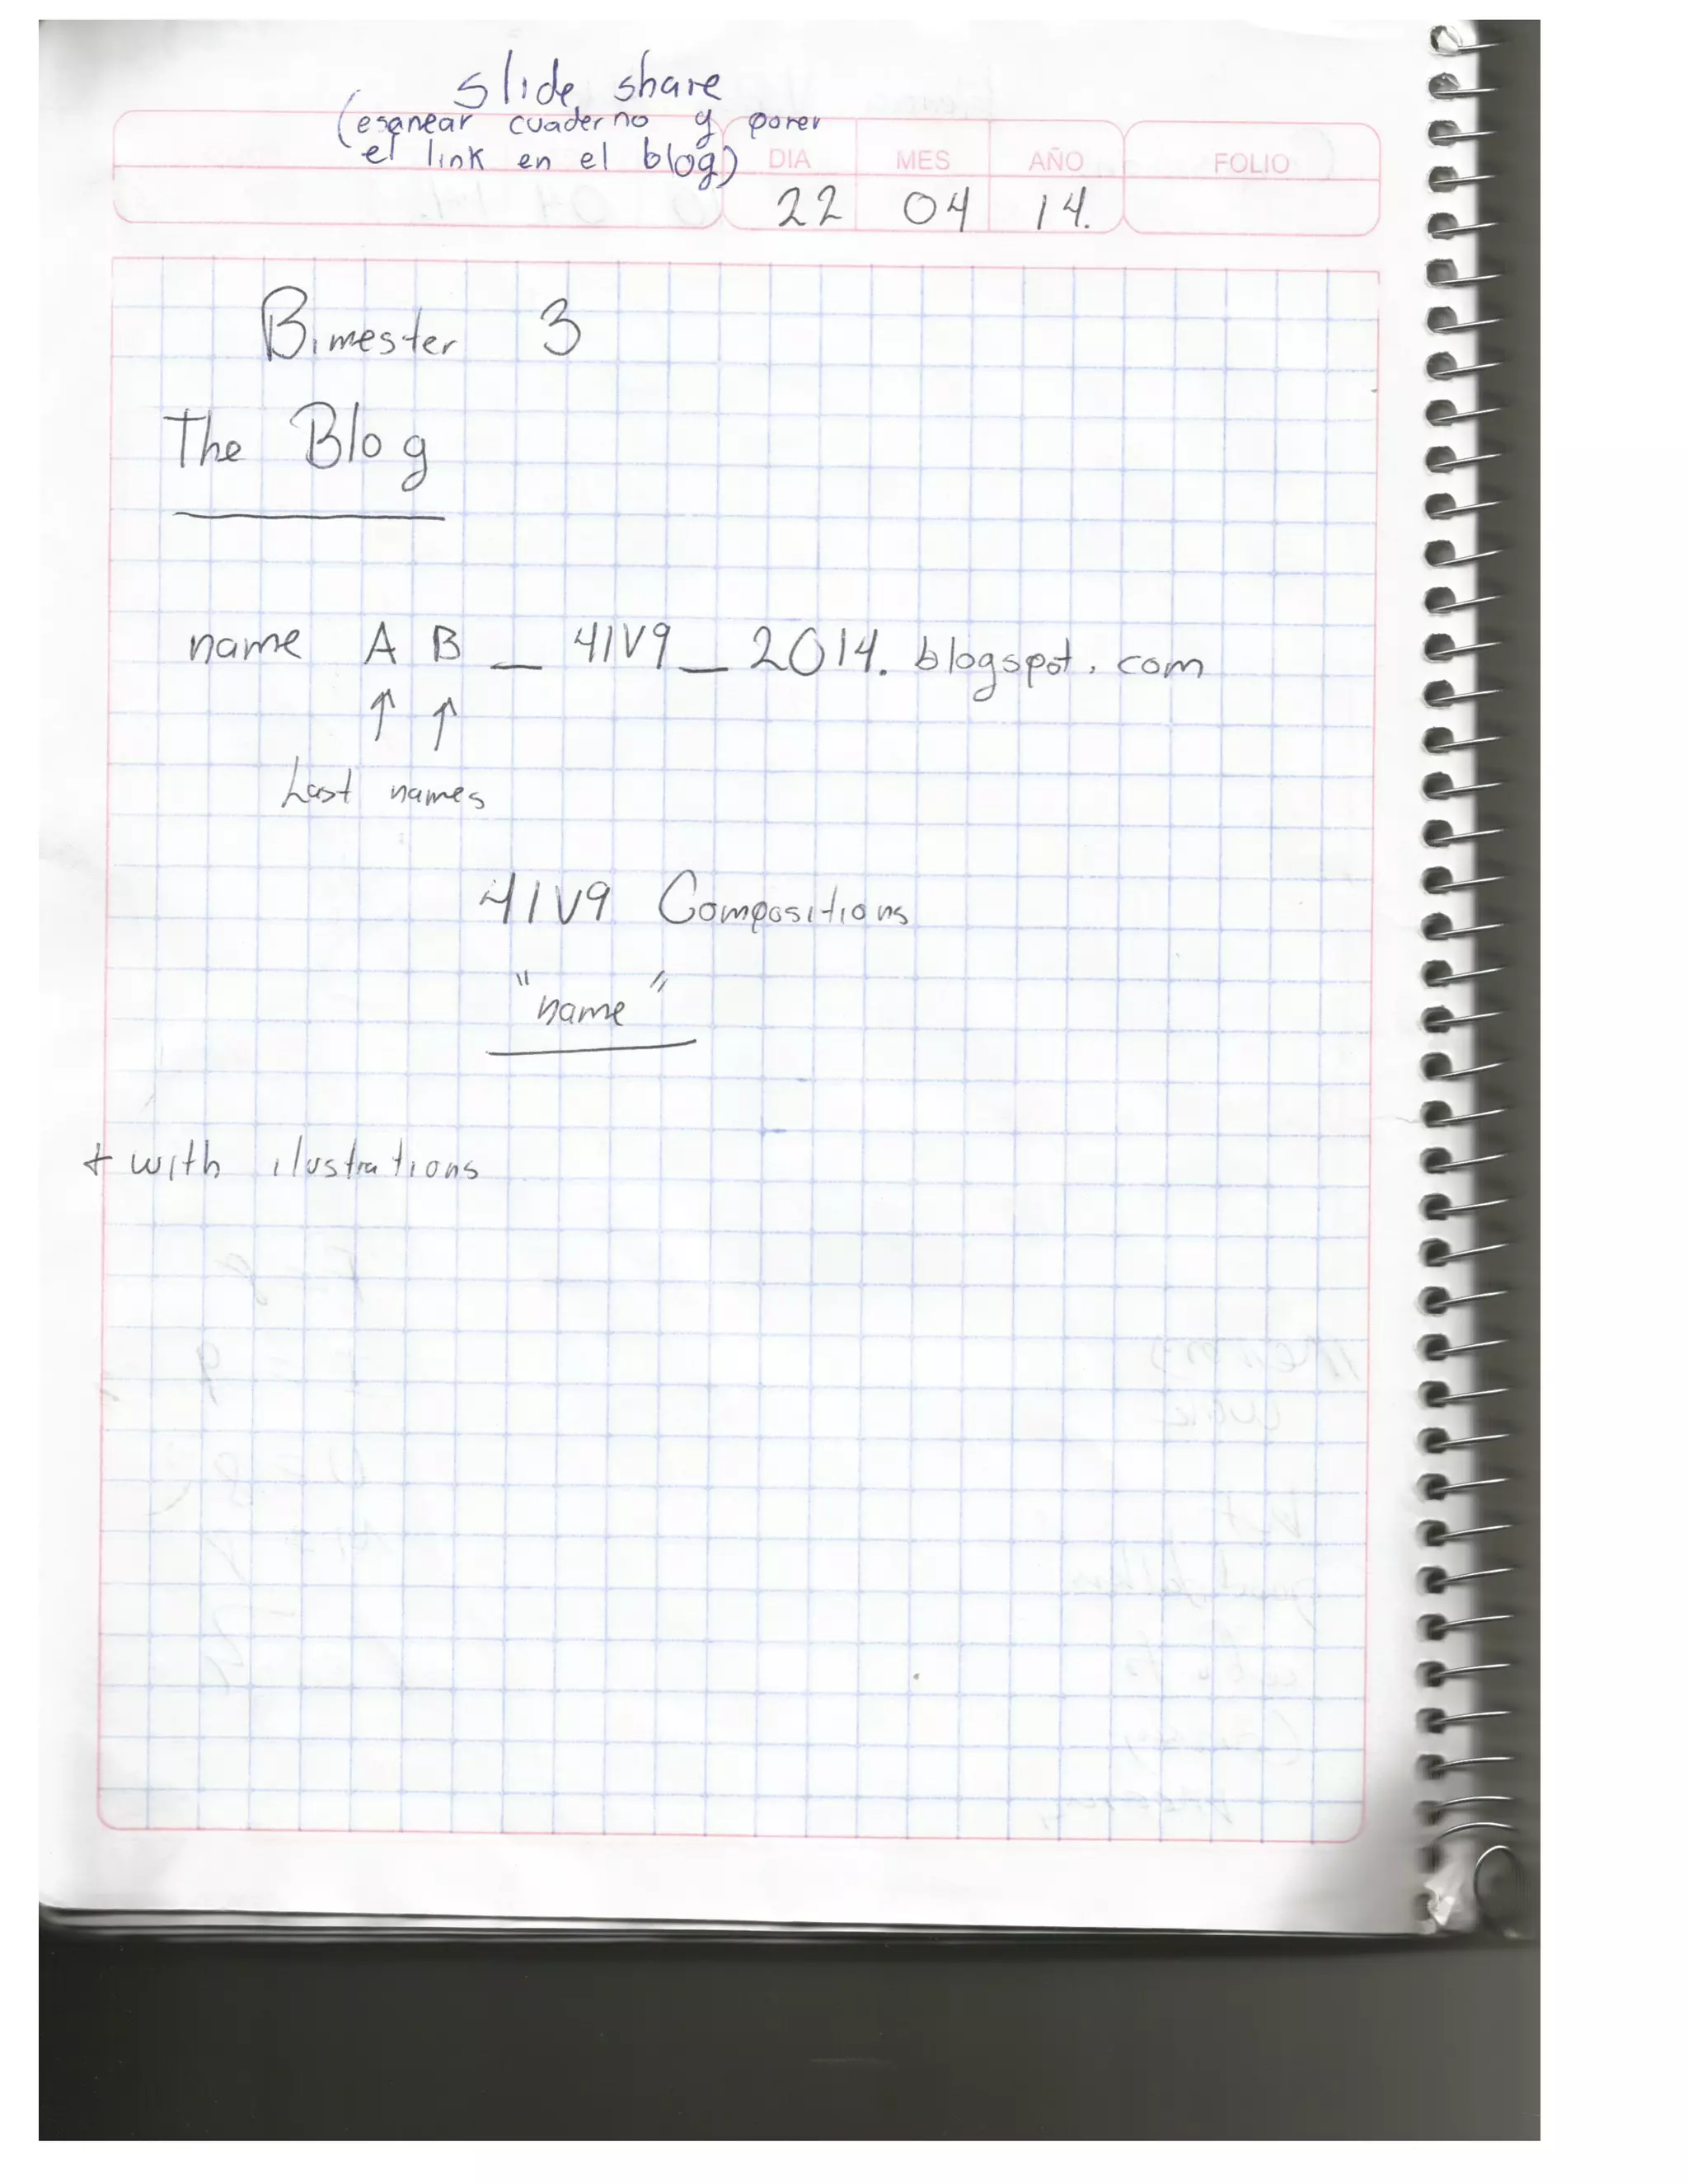 slide share
(escanear cuaderno y poner
el link en el blog)
DIA MES AÑO FOLIO
22 04 14.
Bimester 3
The Blog
name A B _ 4IV9 _ 2014. blogspot. com
↑ ↑
Last names
4IV9 Compositions
"name"
+ with ilustrations